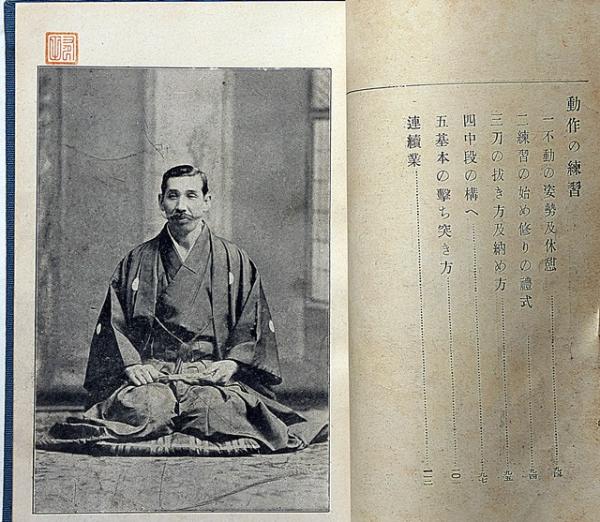 動作の練習
一不動の姿勢及休憩………九四
二練習の始め修りの禮式………九四
三刀の抜き方及納め方………九五
四中段の構へ………九七
五基本の擊ち突き方………一〇一
連續業………一一二